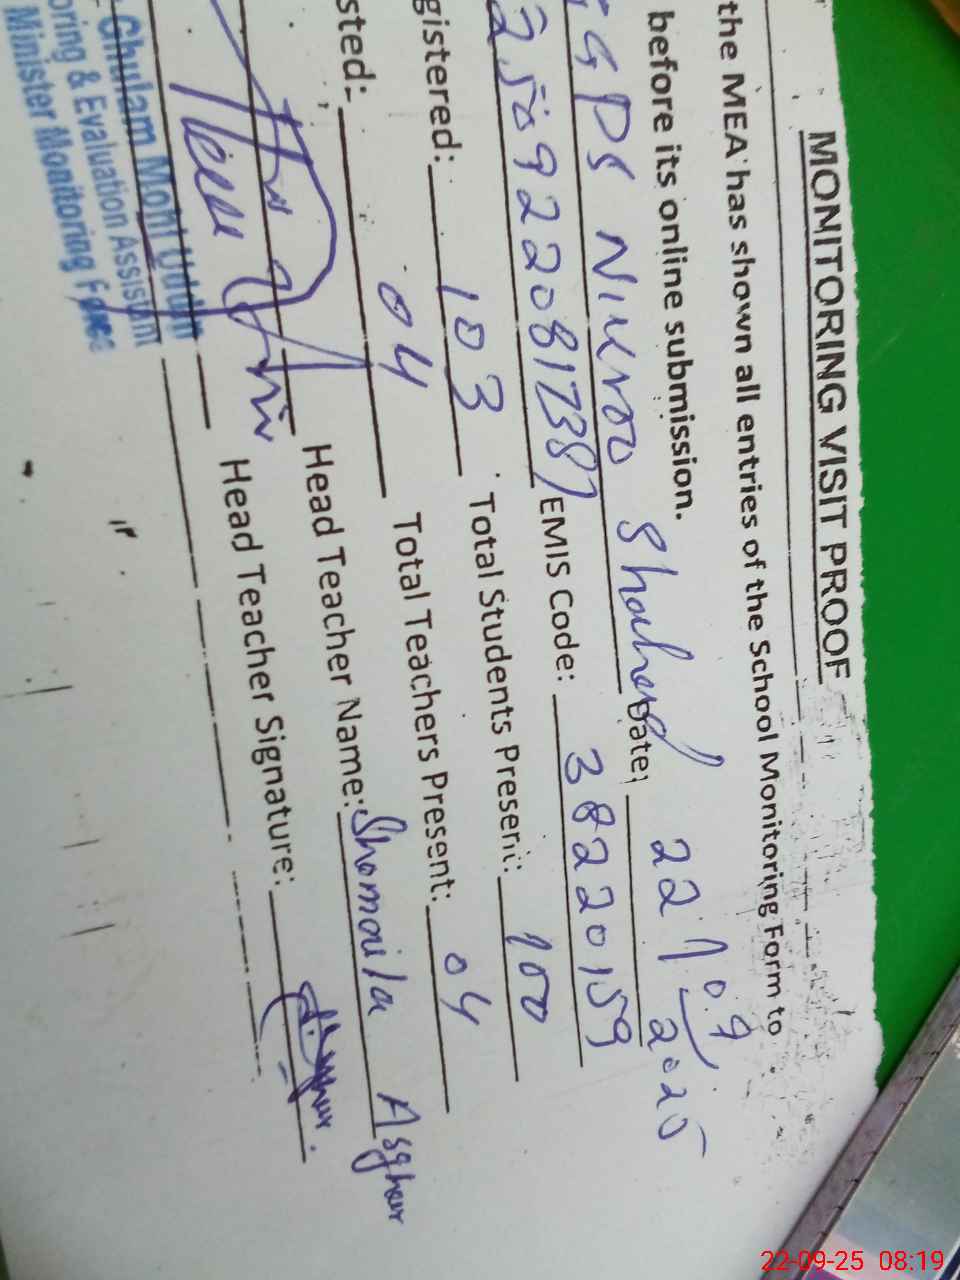 MONITORING VISIT PROOF
the MEA has shown all entries of the School Monitoring Form to
before its online submission.
GPS Nikroo Shaheed Date: 22/09/2025
2509220817387 EMIS Code: 38220159
gistered: 103 Total Students Present: 100
sted: 04 Total Teachers Present: 04
Head Teacher Name: Shomaila Asghar
Head Teacher Signature:
Ghulam Mohi Uddin
oring & Evaluation Assistant
Minister Monitoring Force
22-09-25 08:19